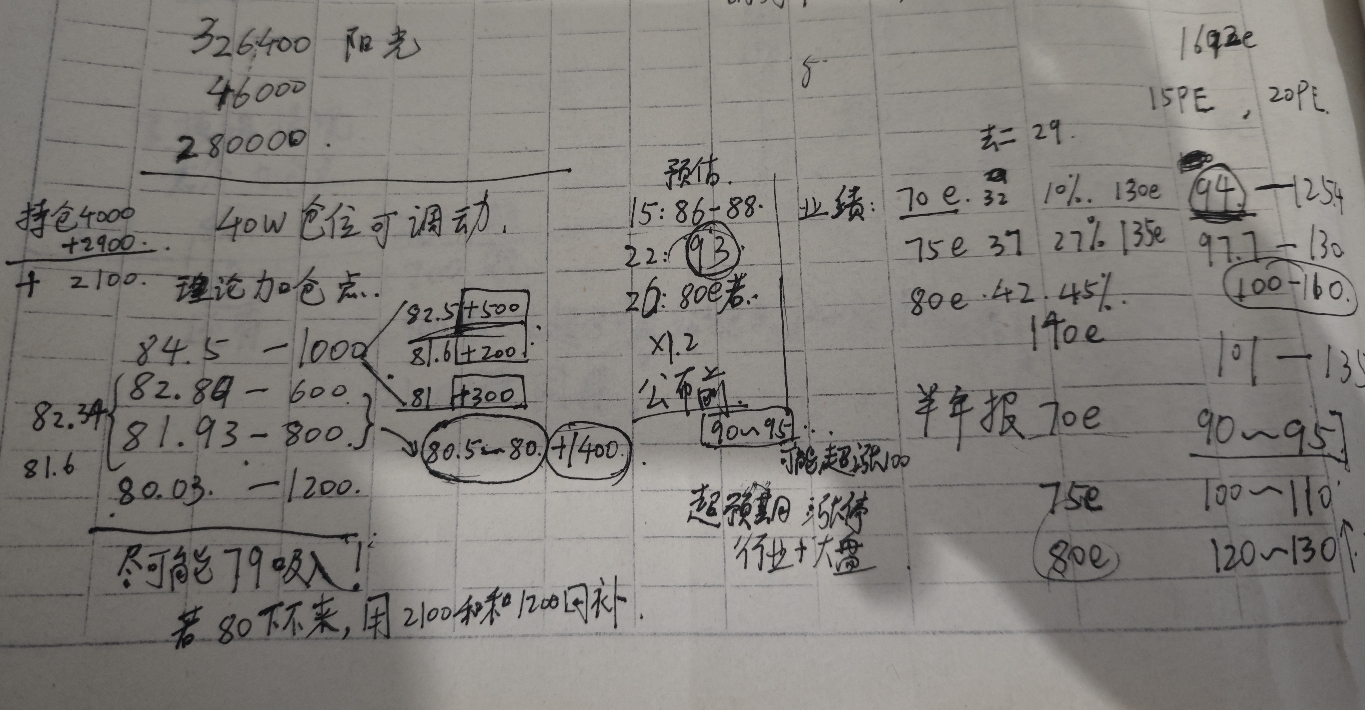 326400 阳光
46000
280000.
持仓4000
+2900.
+ 2100.
40W仓位可调动.
理论加仓点.
84.5 —1000
82.5 +500
81.6 +200
81 +300
82.34
82.89— 600
81.93—800.
80.5~80. +1400.
81.6
80.03. —1200.
尽可能79吸入!
若80下不来,用2100和1200回补.
预估.
15: 86-88.
22: 93
80e若..
×1.2
公布前.
90~95 ...
可能超涨100
超预期 涨停
行业+大盘
1692e
15PE , 20PE.
去二 29.
业绩: 70e. 32 10%. 130e 94. —125.4
75e 37 27% 135e 97.7—130
80e.42.45%. 100-160.
140e
101—135
半年报 70e 90~95
75e 100~110
80e 120~130↑